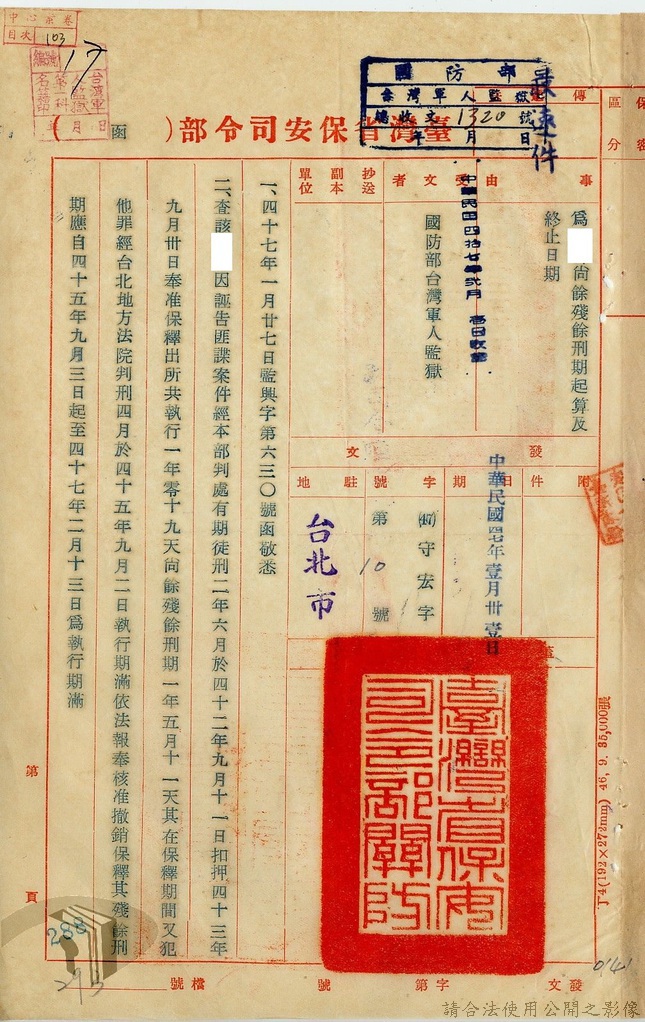 中心京卷
目次 103
編號 17
台灣軍人監獄
第一科
名籍
年 月 日
國防部
臺灣軍人監獄
編收文1320號
年 月 日
最速件
臺灣省保安司令部( 函 )
保密
區分
傳遞
事由
為 尚餘殘餘刑期起算及
終止日期
受文者
國防部台灣軍人監獄
中華民國四拾七年弍月
抄送
副本
單位
附件
發文
日期
中華民國四七年壹月卅壹日
字號
(47)守宏字
第10號
駐地
台北市
一、四十七年一月廿七日監興字第六三〇號函敬悉
二、查該 因誣告匪諜案件經本部判處有期徒刑二年六月於四十二年九月十一日扣押四十三年
九月卅日奉准保釋出所共執行一年零十九天尚餘殘餘刑期一年五月十一天其在保釋期間又犯
他罪經台北地方法院判刑四月於四十五年九月二日執行期滿依法報奉核准撤銷保釋其殘餘刑
期應自四十五年九月三日起至四十七年二月十三日為執行期滿
臺灣省保安司令部關防
丁(192×273mm) 46. 9. 35,000張
第 頁
288
293
0141
發文 字第 號 檔號
請合法使用公開之影像